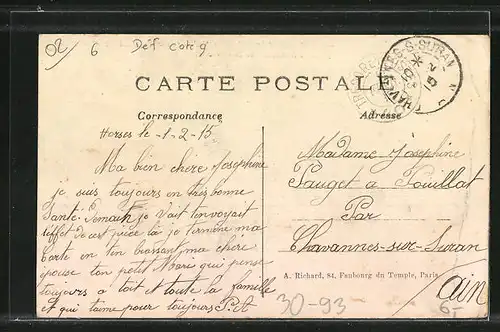 02 6 Déf cot g
CARTE POSTALE
CHAVANNES-S-SURAN
Correspondance
Adresse
le -1-2-15
Ma bien chere Josephine
je suis toujours en tres bonne
Santé Demain je Vait tenvoyait
effet de cest pièce la je termine ma
Carte en ten brassant ma chère
épouse ton petit Mari qui pense
toujours à toit et toute la famille
et qui taime pour toujours P. A
Madame Josephine
Pauget a Pouillat
Par
Chavannes-sur-Suran
A. Richard, 84, Faubourg du Temple, Paris
Ain
30-93
6-